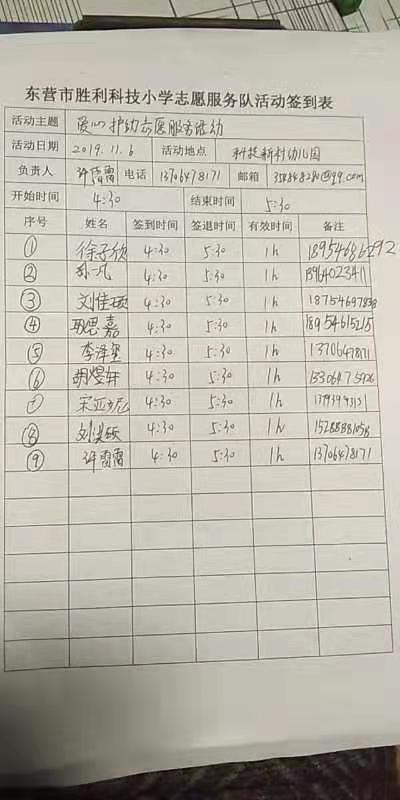 东营市胜利科技小学志愿服务队活动签到表
活动主题 爱心护幼志愿服务活动
活动日期 2019.11.6 活动地点 科技新村幼儿园
负责人 许雷雷 电话 13706478171 邮箱 @qq.com
开始时间 4:30 结束时间 5:30
序号 姓名 签到时间 签退时间 有效时间 备注
① 徐子欣 4:30 5:30 1h 18954686292
② 孙一凡 4:30 5:30 1h
③ 刘佳硕 4:30 5:30 1h
④ 耿思嘉 4:30 5:30 1h 18954615215
⑤ 李泽玺 4:30 5:30 1h 13706478171
⑥ 胡煜轩 4:30 5:30 1h
⑦ 宋亚 4:30 5:30 1h
⑧ 刘淏硕 4:30 5:30 1h
⑨ 许雷雷 4:30 5:30 1h 13706478171